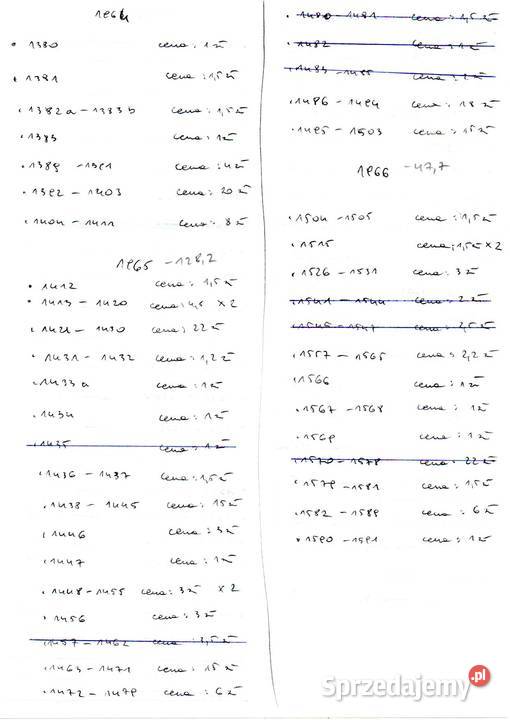 1964
• 1380 cena: 1 zł
• 1381 cena: 1,5 zł
• 1382a – 1383b cena: 1,5 zł
• 1383 cena: 1 zł
• 1389 – 1391 cena: 4 zł
• 1392 – 1403 cena: 20 zł
• 1404 – 1411 cena: 8 zł
1965 – 128,2
• 1412 cena: 1,5 zł
• 1413 – 1420 cena: 4,5 x 2
• 1421 – 1430 cena: 22 zł
• 1431 – 1432 cena: 1,2 zł
• 1433a cena: 1 zł
• 1434 cena: 1 zł
• 1435 cena: 1 zł
• 1436 – 1437 cena: 1,5 zł
• 1438 – 1445 cena: 15 zł
• 1446 cena: 3 zł
• 1447 cena: 1 zł
• 1448 – 1455 cena: 3 zł x 2
• 1456 cena: 3 zł
• 1457 – 1462 cena: 3,5 zł
• 1463 – 1471 cena: 15 zł
• 1472 – 1479 cena: 6 zł
• 1480 – 1481 cena: 1,5 zł
• 1482 cena: 1 zł
• 1483 – 1485 cena: 2 zł
• 1486 – 1494 cena: 18 zł
• 1495 – 1503 cena: 15 zł
1966 – 47,7
• 1504 – 1505 cena: 1,5 zł
• 1515 cena: 1,5 zł x 2
• 1526 – 1531 cena: 3 zł
• 1541 – 1544 cena: 2 zł
• 1545 – 1547 cena: 2,5 zł
• 1557 – 1565 cena: 2,2 zł
• 1566 cena: 1 zł
• 1567 – 1568 cena: 1 zł
• 1569 cena: 1 zł
• 1570 – 1578 cena: 22 zł
• 1579 – 1581 cena: 1,5 zł
• 1582 – 1589 cena: 6 zł
• 1590 – 1591 cena: 1 zł
Sprzedajemy.pl